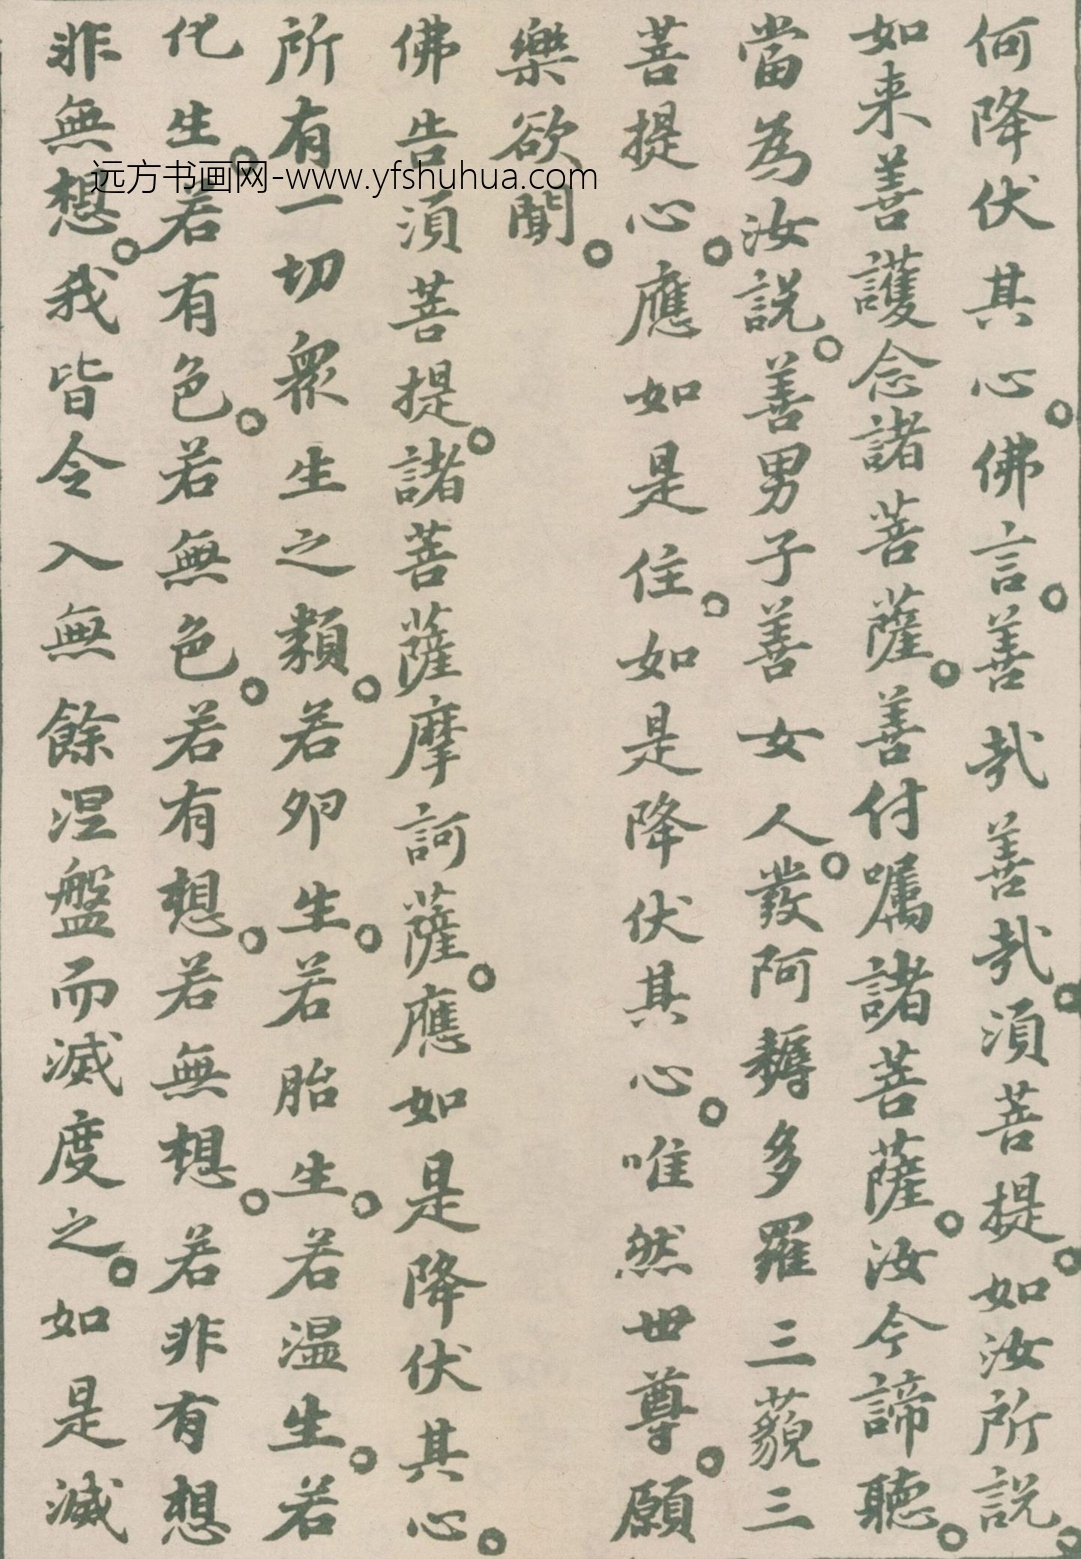 何降伏其心。佛言。善哉善哉。須菩提。如汝所説。
如来善護念諸菩薩。善付囑諸菩薩。汝今諦聽。
當為汝説。善男子善女人。發阿耨多羅三藐三
菩提心。應如是住。如是降伏其心。唯然世尊。願
樂欲聞。
佛告須菩提。諸菩薩摩訶薩。應如是降伏其心。
所有一切衆生之類。若卵生。若胎生。若温生。若
化生。若有色。若無色。若有想。若無想。若非有想
非無想。我皆令入無餘涅盤而滅度之。如是滅
远方书画网-www.yfshuhua.com